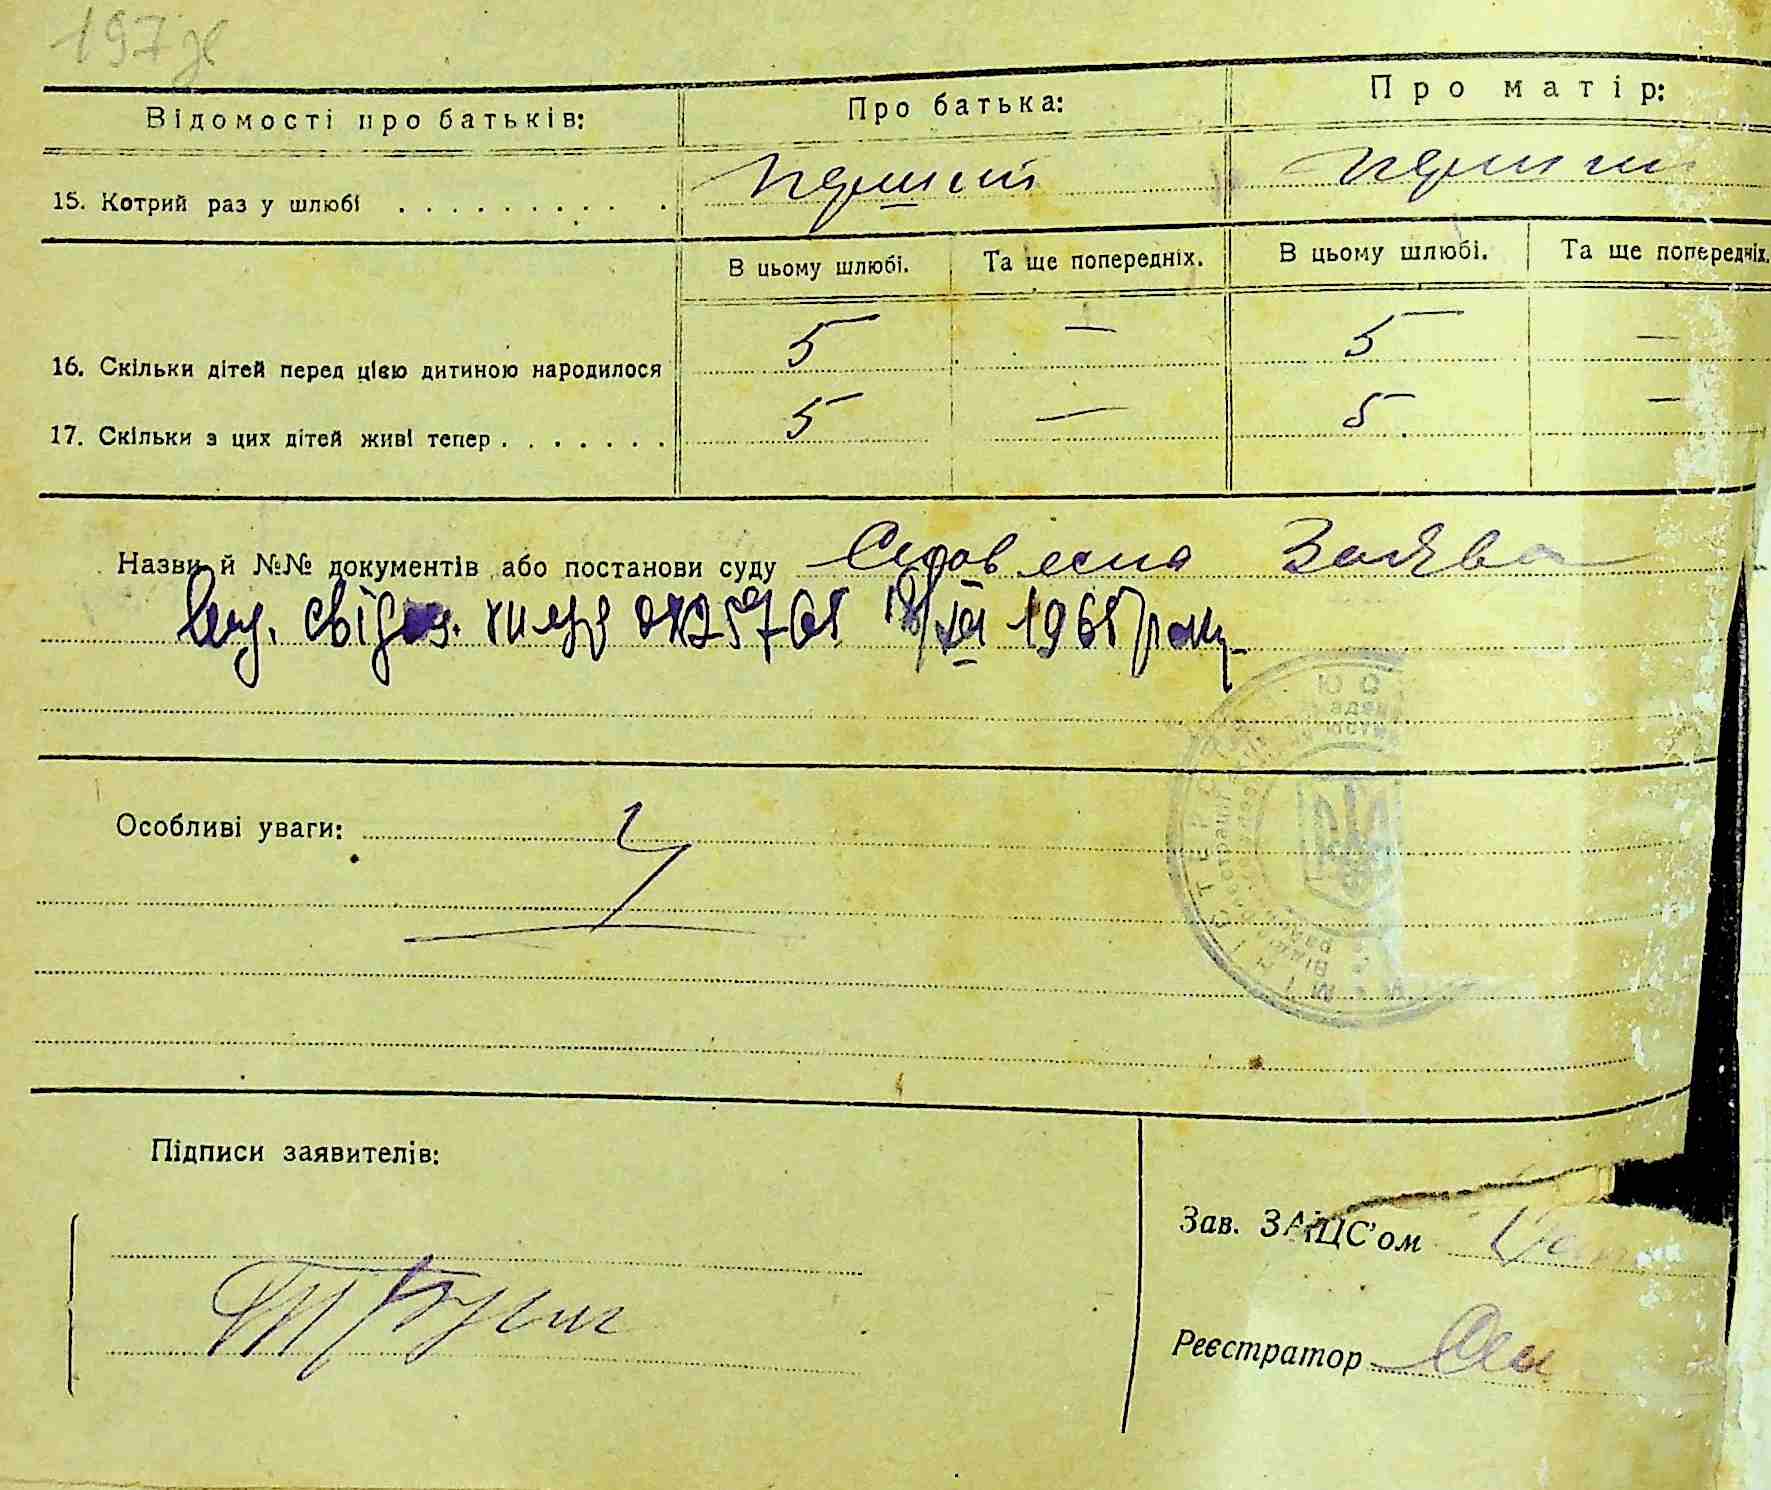 197 зв
Відомості про батьків: Про батька: Про матір:
15. Котрий раз у шлюбі . . . . . . . . . . перший перший
В цьому шлюбі. Та ще попередніх. В цьому шлюбі. Та ще попередніх.
16. Скільки дітей перед цією дитиною народилося 5 — 5 —
17. Скільки з цих дітей живі тепер . . . . . . . 5 — 5 —
Назви й №№ документів або постанови суду Словесна Заява
Вид. свідоц. 1965 року
Особливі уваги:
Підписи заявителів:
Зав. ЗАЦС'ом
Реєстратор